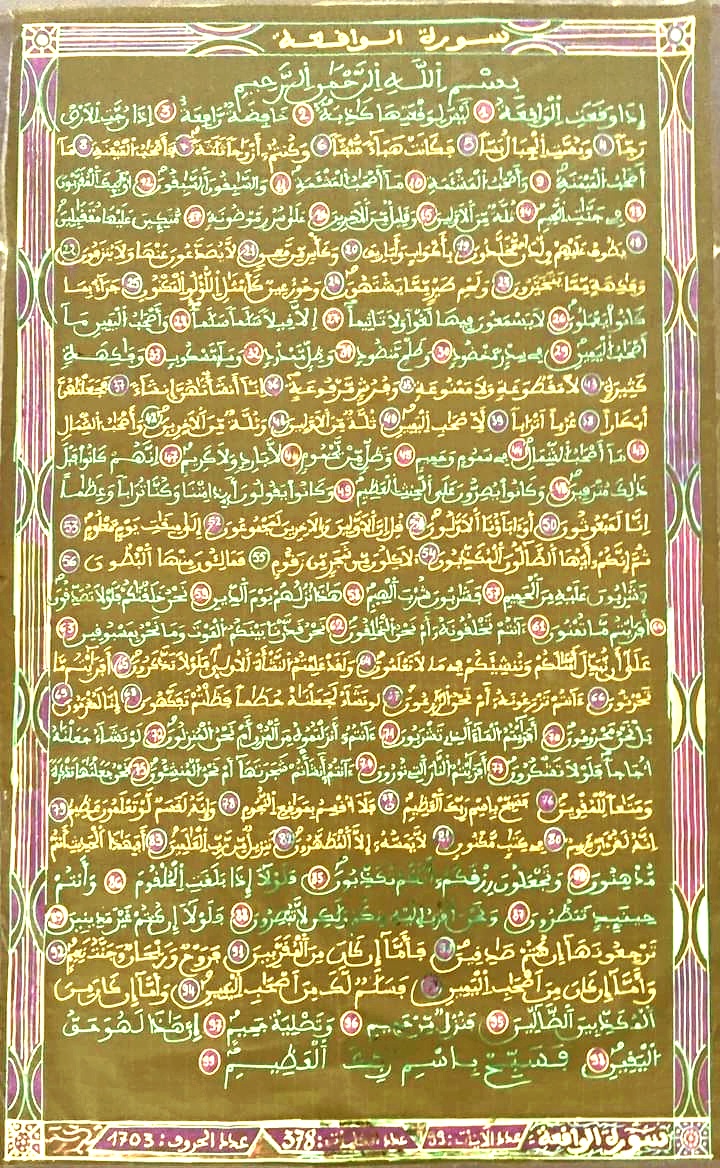 سورة الواقعة
بسم الله الرحمن الرحيم
إذا وقعت الواقعة 1 ليس لوقعتها كاذبة 2 خافضة رافعة 3 إذا رجت الارض
رجا 4 وبست الجبال بسا 5 فكانت هباء منبثا 6 وكنتم أزواجا ثلثة 7 فأصحب الميمنة 8 ما
أصحب الميمنة 9 وأصحب المشئمة 10 ما أصحب المشئمة 11 والسبقون السبقون 12 أولئك المقربون
13 في جنت النعيم 14 ثلة من الاولين 15 وقليل من الاخرين 16 على سرر موضونة 17 متكئين عليها متقبلين
18 يطوف عليهم ولدان مخلدون 19 بأكواب وأباريق 20 وكأس من معين 21 لا يصدعون عنها ولا ينزفون 22
وفكهة مما يتخيرون 23 ولحم طير مما يشتهون 24 وحور عين كأمثل اللؤلؤ المكنون 25 جزاء بما
كانوا يعملون 26 لا يسمعون فيها لغوا ولا تاثيما 27 إلا قيلا سلما سلما 28 وأصحب اليمين ما
أصحب اليمين 29 في سدر مخضود 30 وطلح منضود 31 وظل ممدود 32 وماء مسكوب 33 وفكهة
كثيرة 34 لا مقطوعة ولا ممنوعة 35 وفرش مرفوعة 36 إنا أنشأنهن إنشاء 37 فجعلنهن
أبكارا 38 عربا أترابا 39 لأصحب اليمين 40 ثلة من الاولين 41 وثلة من الاخرين 42 وأصحب الشمال
43 ما أصحب الشمال 44 في سموم وحميم 45 وظل من يحموم 46 لا بارد ولا كريم 47 إنهم كانوا قبل
ذلك مترفين 48 وكانوا يصرون على الحنث العظيم 49 وكانوا يقولون أيذا متنا وكنا ترابا وعظما
إنا لمبعوثون 50 أو ءاباؤنا الاولون 51 قل إن الاولين والاخرين لمجموعون 52 إلى ميقات يوم معلوم 53
ثم إنكم أيها الضالون المكذبون 54 لأكلون من شجر من زقوم 55 فمالئون منها البطون 56
فشربون عليه من الحميم 57 فشربون شرب الهيم 58 هذا نزلهم يوم الدين 59 نحن خلقنكم فلولا تصدقون
60 أفرأيتم ما تمنون 61 ءأنتم تخلقونه أم نحن الخلقون 62 نحن قدرنا بينكم الموت وما نحن بمسبوقين 63
على أن نبدل أمثلكم وننشئكم في ما لا تعلمون 64 ولقد علمتم النشأة الاولى فلولا تذكرون 65 أفرأيتم ما
تحرثون 66 ءأنتم تزرعونه أم نحن الزرعون 67 لو نشاء لجعلنه حطما فظلتم تفكهون 68 إنا لمغرمون 69
بل نحن محرومون 70 أفرأيتم الماء الذي تشربون 71 ءأنتم أنزلتموه من المزن أم نحن المنزلون 72 لو نشاء جعلنه
أجاجا فلولا تشكرون 73 أفرأيتم النار التي تورون 74 ءأنتم أنشأتم شجرتها أم نحن المنشئون 75 نحن جعلنها تذكرة
ومتعا للمقوين 76 فسبح باسم ربك العظيم 77 فلا أقسم بموقع النجوم 78 وإنه لقسم لو تعلمون عظيم 79
إنه لقرءان كريم 80 في كتب مكنون 81 لا يمسه إلا المطهرون 82 تنزيل من رب العلمين 83 أفبهذا الحديث أنتم
مدهنون 84 وتجعلون رزقكم أنكم تكذبون 85 فلولا إذا بلغت الحلقوم 86 وأنتم
حينئذ تنظرون 87 ونحن أقرب إليه منكم ولكن لا تبصرون 88 فلولا إن كنتم غير مدينين 89
ترجعونها إن كنتم صدقين 90 فأما إن كان من المقربين 91 فروح وريحان وجنت نعيم 92
وأما إن كان من أصحب اليمين 93 فسلم لك من أصحب اليمين 94 وأما إن كان من
المكذبين الضالين 95 فنزل من حميم 96 وتصلية جحيم 97 إن هذا لهو حق
اليقين 98 فسبح باسم ربك العظيم 99
سورة الواقعة عدد الآيات: 99 عدد الكلمات: 378 عدد الحروف: 1703